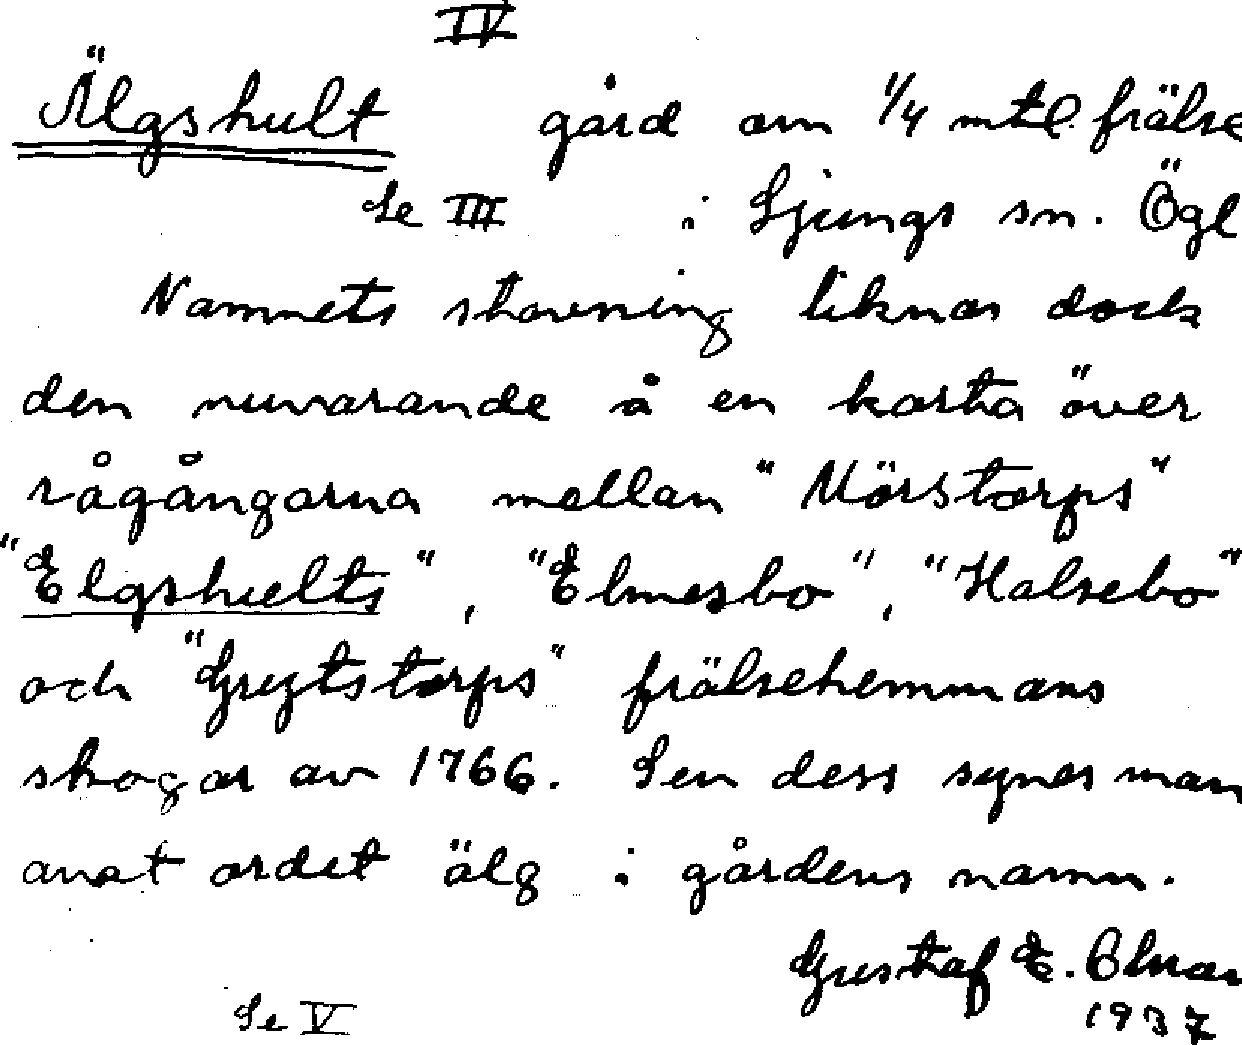 IV
Älgshult gård om 1/4 mtl. frälse
Se III i Ljungs sn. Ögl
Namnets stavning liknas dock
den nuvarande å en karta över
rågångarna mellan "Mörstorps"
"Elgshults", "Elmesbo", "Halsebo"
och "Grytstorps" frälsehemmans
skogar av 1766. Sen dess synes man
anat ordet älg i gårdens namn.
Gustaf E.
Se V 1937